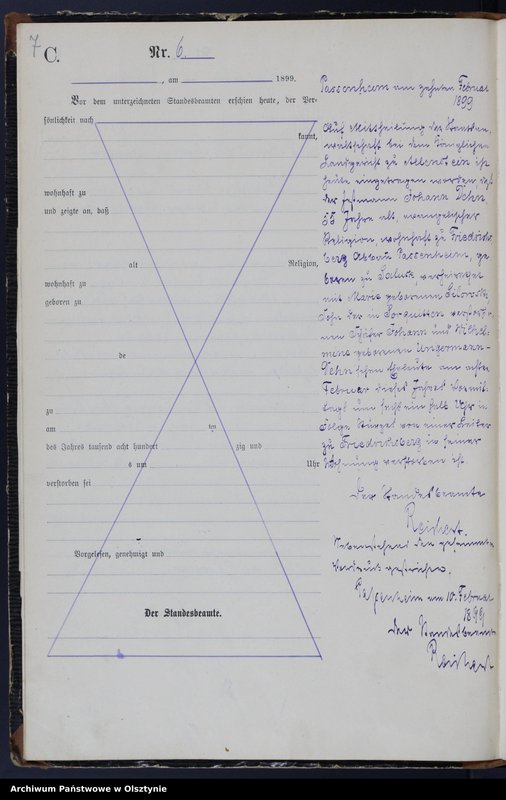 7 C.
Nr. 6.
, am 1899.
Vor dem unterzeichneten Standesbeamten erschien heute, der Per-
sönlichkeit nach
kannt,
wohnhaft zu
und zeigte an, daß
alt Religion,
wohnhaft zu
geboren zu
de
zu
am ten
des Jahres tausend acht hundert zig und
s um Uhr
verstorben sei
Vorgelesen, genehmigt und
Der Standesbeamte.
Passenheim am zehnten Februar
1899
Auf Mittheilung der Staatsan-
waltschaft bei dem Königlichen
Landgericht zu Allenstein ist
heute eingetragen worden, daß
der Johann Dehn
Jahre alt evangelischer
Religion, wohnhaft zu Friedrichs-
berg Abbau Passenheim, ge-
boren zu verheirathet
mit Marie geborenen
Sohn der in verstorbe-
nen Schäfer Johann und Wilhel-
mine geborenen Ungermann-
Dehn'schen Eheleute am achten
Februar dieses Jahres Vormit-
tags um sechs ein halb Uhr in
Folge Sturzes von einer Leiter
zu Friedrichsberg in seiner
Wohnung verstorben ist.
Der Standesbeamte
Reichert.
Nebenstehend den gesammten
Vordruck gestrichen.
Passenheim am 10. Februar
1899
Der Standesbeamte
Reichert
Archiwum Państwowe w Olsztynie